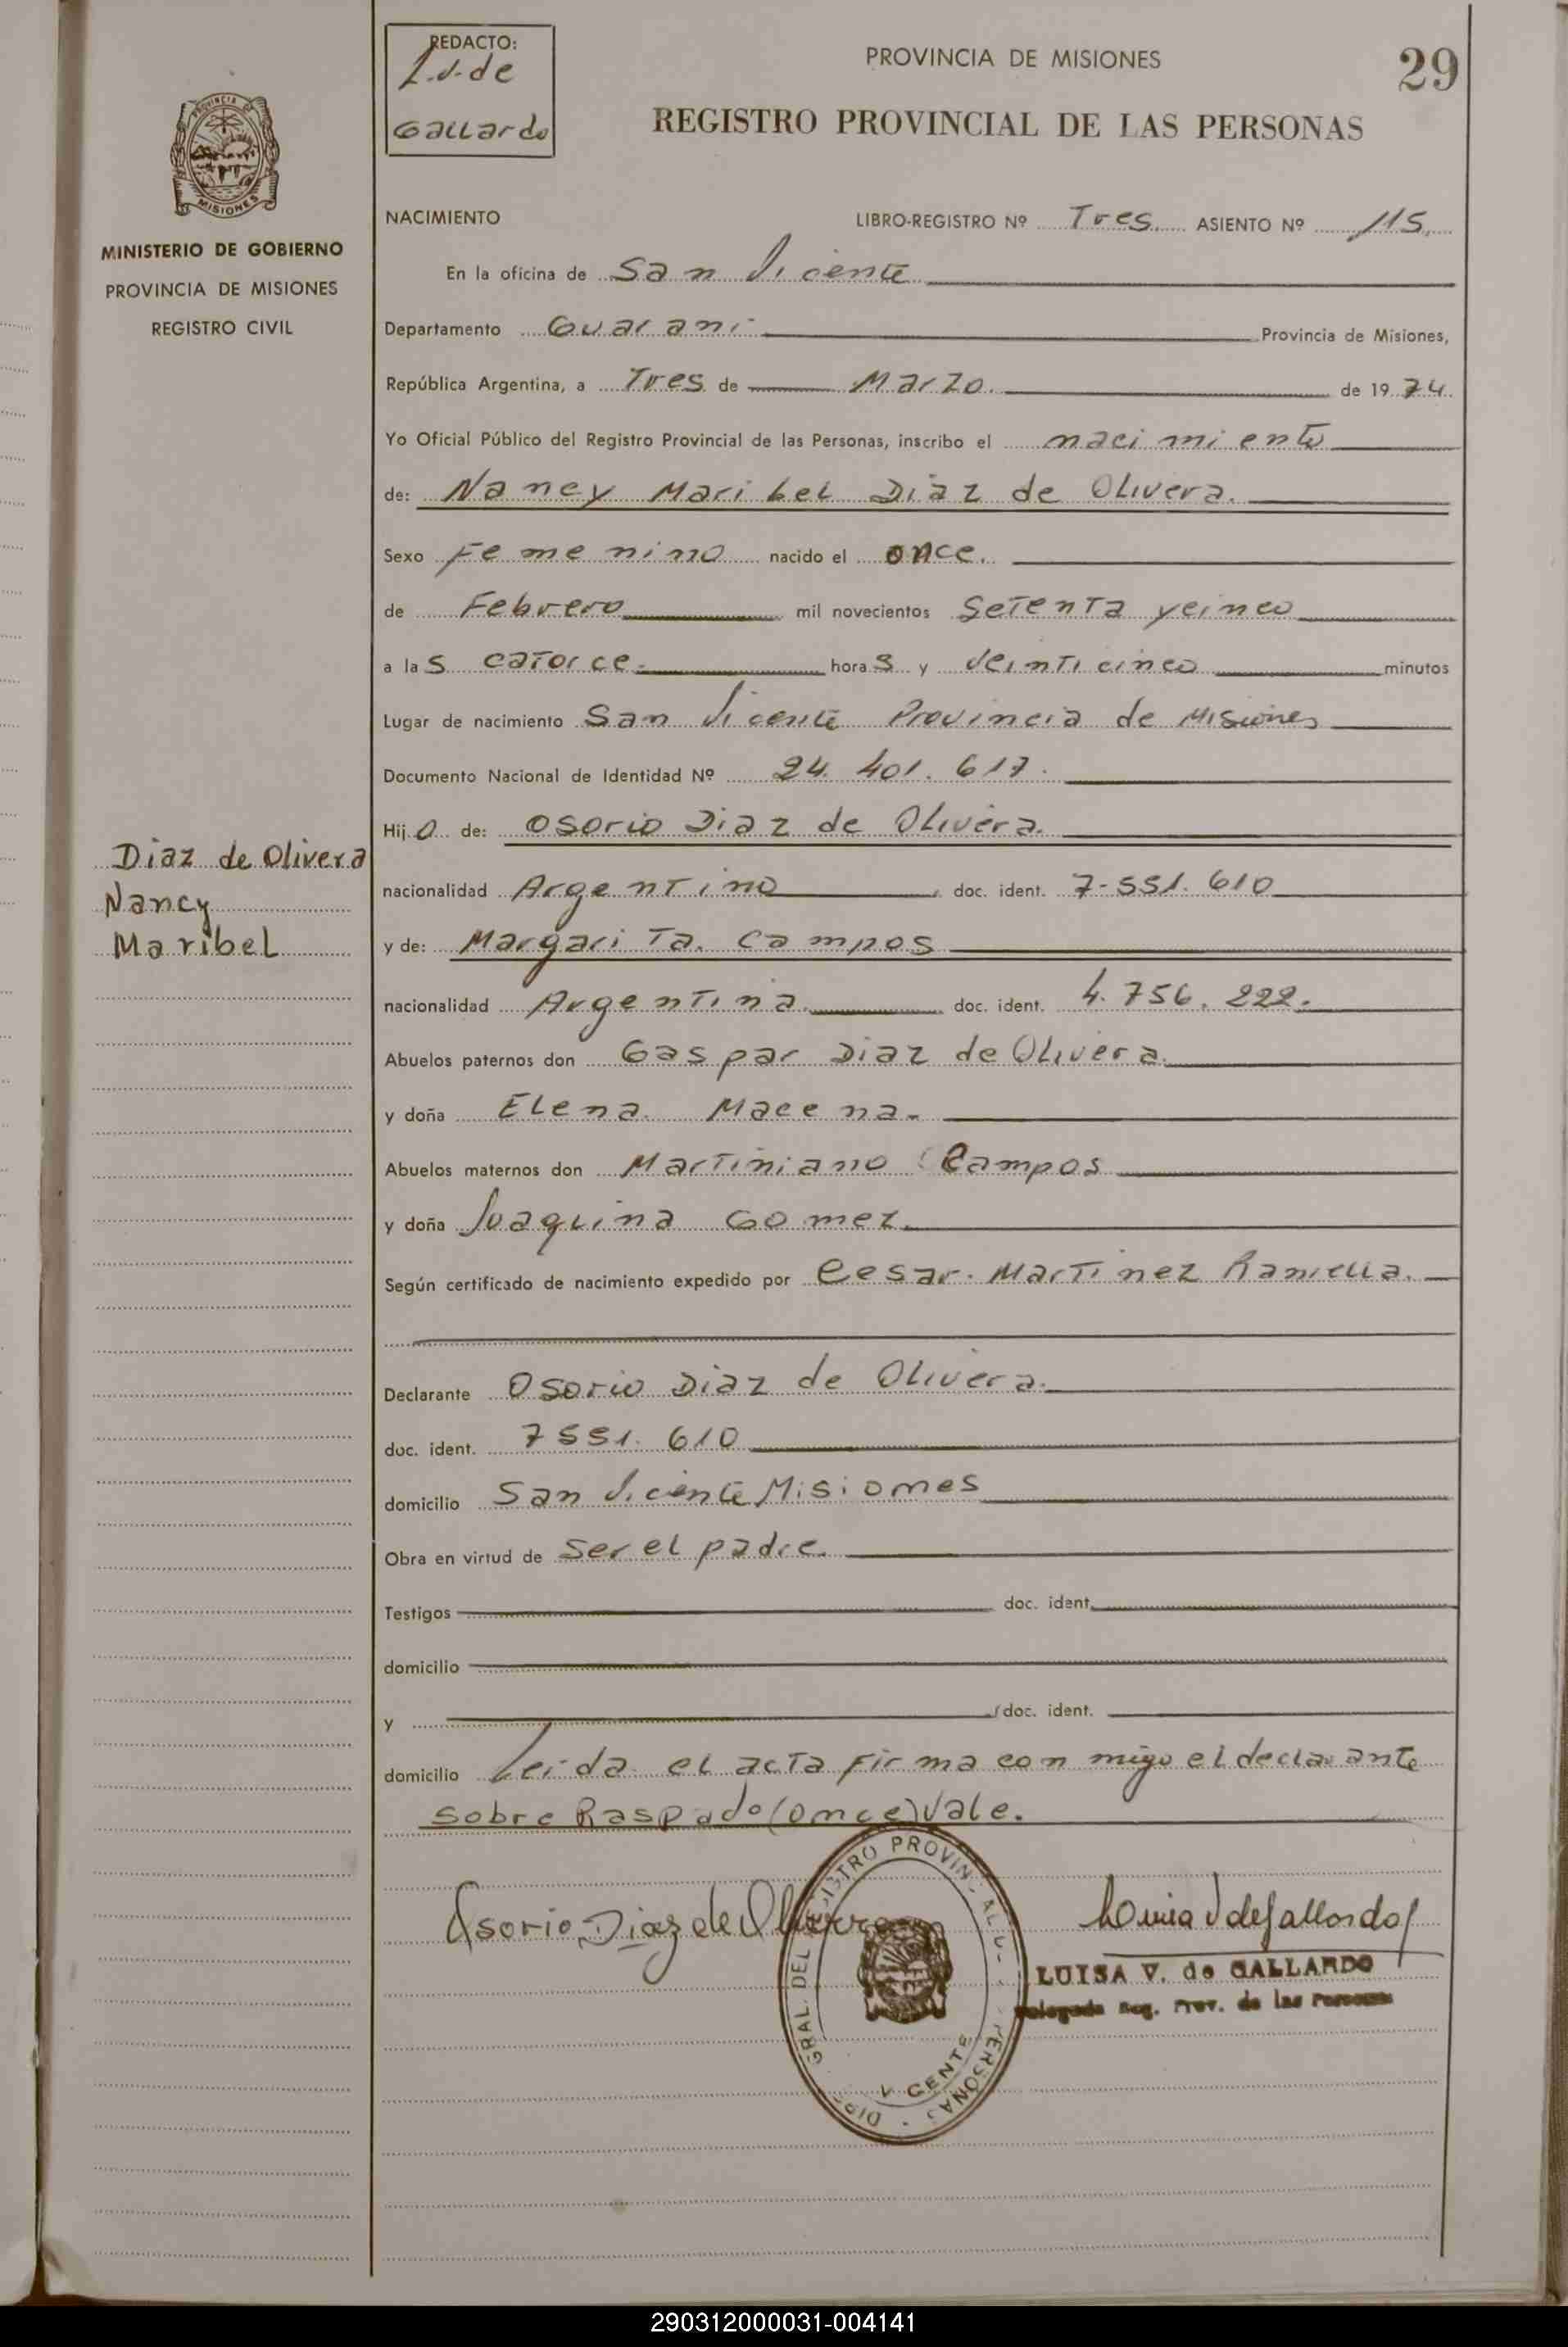 REDACTO:
L.V. de
Gallardo
PROVINCIA DE MISIONES
29
REGISTRO PROVINCIAL DE LAS PERSONAS
PROVINCIA DE
MISIONES
MINISTERIO DE GOBIERNO
PROVINCIA DE MISIONES
REGISTRO CIVIL
NACIMIENTO LIBRO-REGISTRO Nº Tres. ASIENTO Nº 115.
En la oficina de San Vicente
Departamento Guarani Provincia de Misiones,
República Argentina, a Tres de Marzo. de 1974.
Yo Oficial Público del Registro Provincial de las Personas, inscribo el nacimiento
de: Nancy Maribel Diaz de Olivera.
Sexo Femenino nacido el once.
de Febrero mil novecientos Setenta y cinco
a las catorce. horas y Veinticinco minutos
Lugar de nacimiento San Vicente Provincia de Misiones
Documento Nacional de Identidad Nº 24. 401. 617.
Hijo de: Osorio Diaz de Olivera.
Diaz de Olivera
Nancy
Maribel
nacionalidad Argentino doc. ident. 7-551.610
y de: Margarita. Campos
nacionalidad Argentina. doc. ident. 4.756.222.
Abuelos paternos don Gaspar Diaz de Olivera.
y doña Elena. Macena.
Abuelos maternos don Martiniano Campos
y doña Joaquina Gomez.
Según certificado de nacimiento expedido por Cesar. Martinez Raniella.
Declarante Osorio Diaz de Olivera.
doc. ident. 7551.610
domicilio San Vicente Misiones
Obra en virtud de Ser el padre.
Testigos doc. ident.
domicilio
y doc. ident.
domicilio Leida el acta firma con migo el declarante
Sobre Raspado (once) Vale.
Osorio Diaz de Olivera
Luisa V de Gallardo
LUISA V. de GALLARDO
Delegada Reg. Prov. de las Personas
290312000031-004141